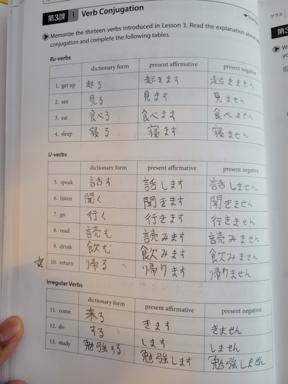 第3課 1 Verb Conjugation
Memorize the thirteen verbs introduced in Lesson 3. Read the explanation about
conjugation and complete the following tables.
Ru-verbs
dictionary form present affirmative present negative
1. get up 起る 起きます 起きません
2. see 見る 見ます 見ません
3. eat 食べる 食べます 食べません
4. sleep 寝る 寝ます 寝ません
U-verbs
dictionary form present affirmative present negative
5. speak 話す 話します 話しません
6. listen 聞く 聞きます 聞きません
7. go 行く 行きます 行きません
8. read 読む 読みます 読みません
9. drink 飲む 飲みます 飲みません
10. return 帰る 帰ります 帰りません
Irregular Verbs
dictionary form present affirmative present negative
11. come 来る きます きません
12. do する します しません
13. study 勉強する 勉強します 勉強しません